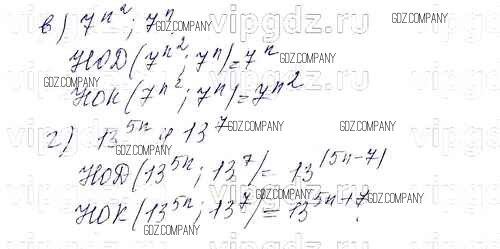 в) 7^n²; 7^n
НОД(7^n²; 7^n)=7^n
НОК(7^n²; 7^n)=7^n²
г) 13^5n и 13^7
НОД(13^5n; 13^7)= 13^|5n-7|
НОК(13^5n; 13^7)=13^5n+7
vipgdz.ru
GDZ.COMPANY